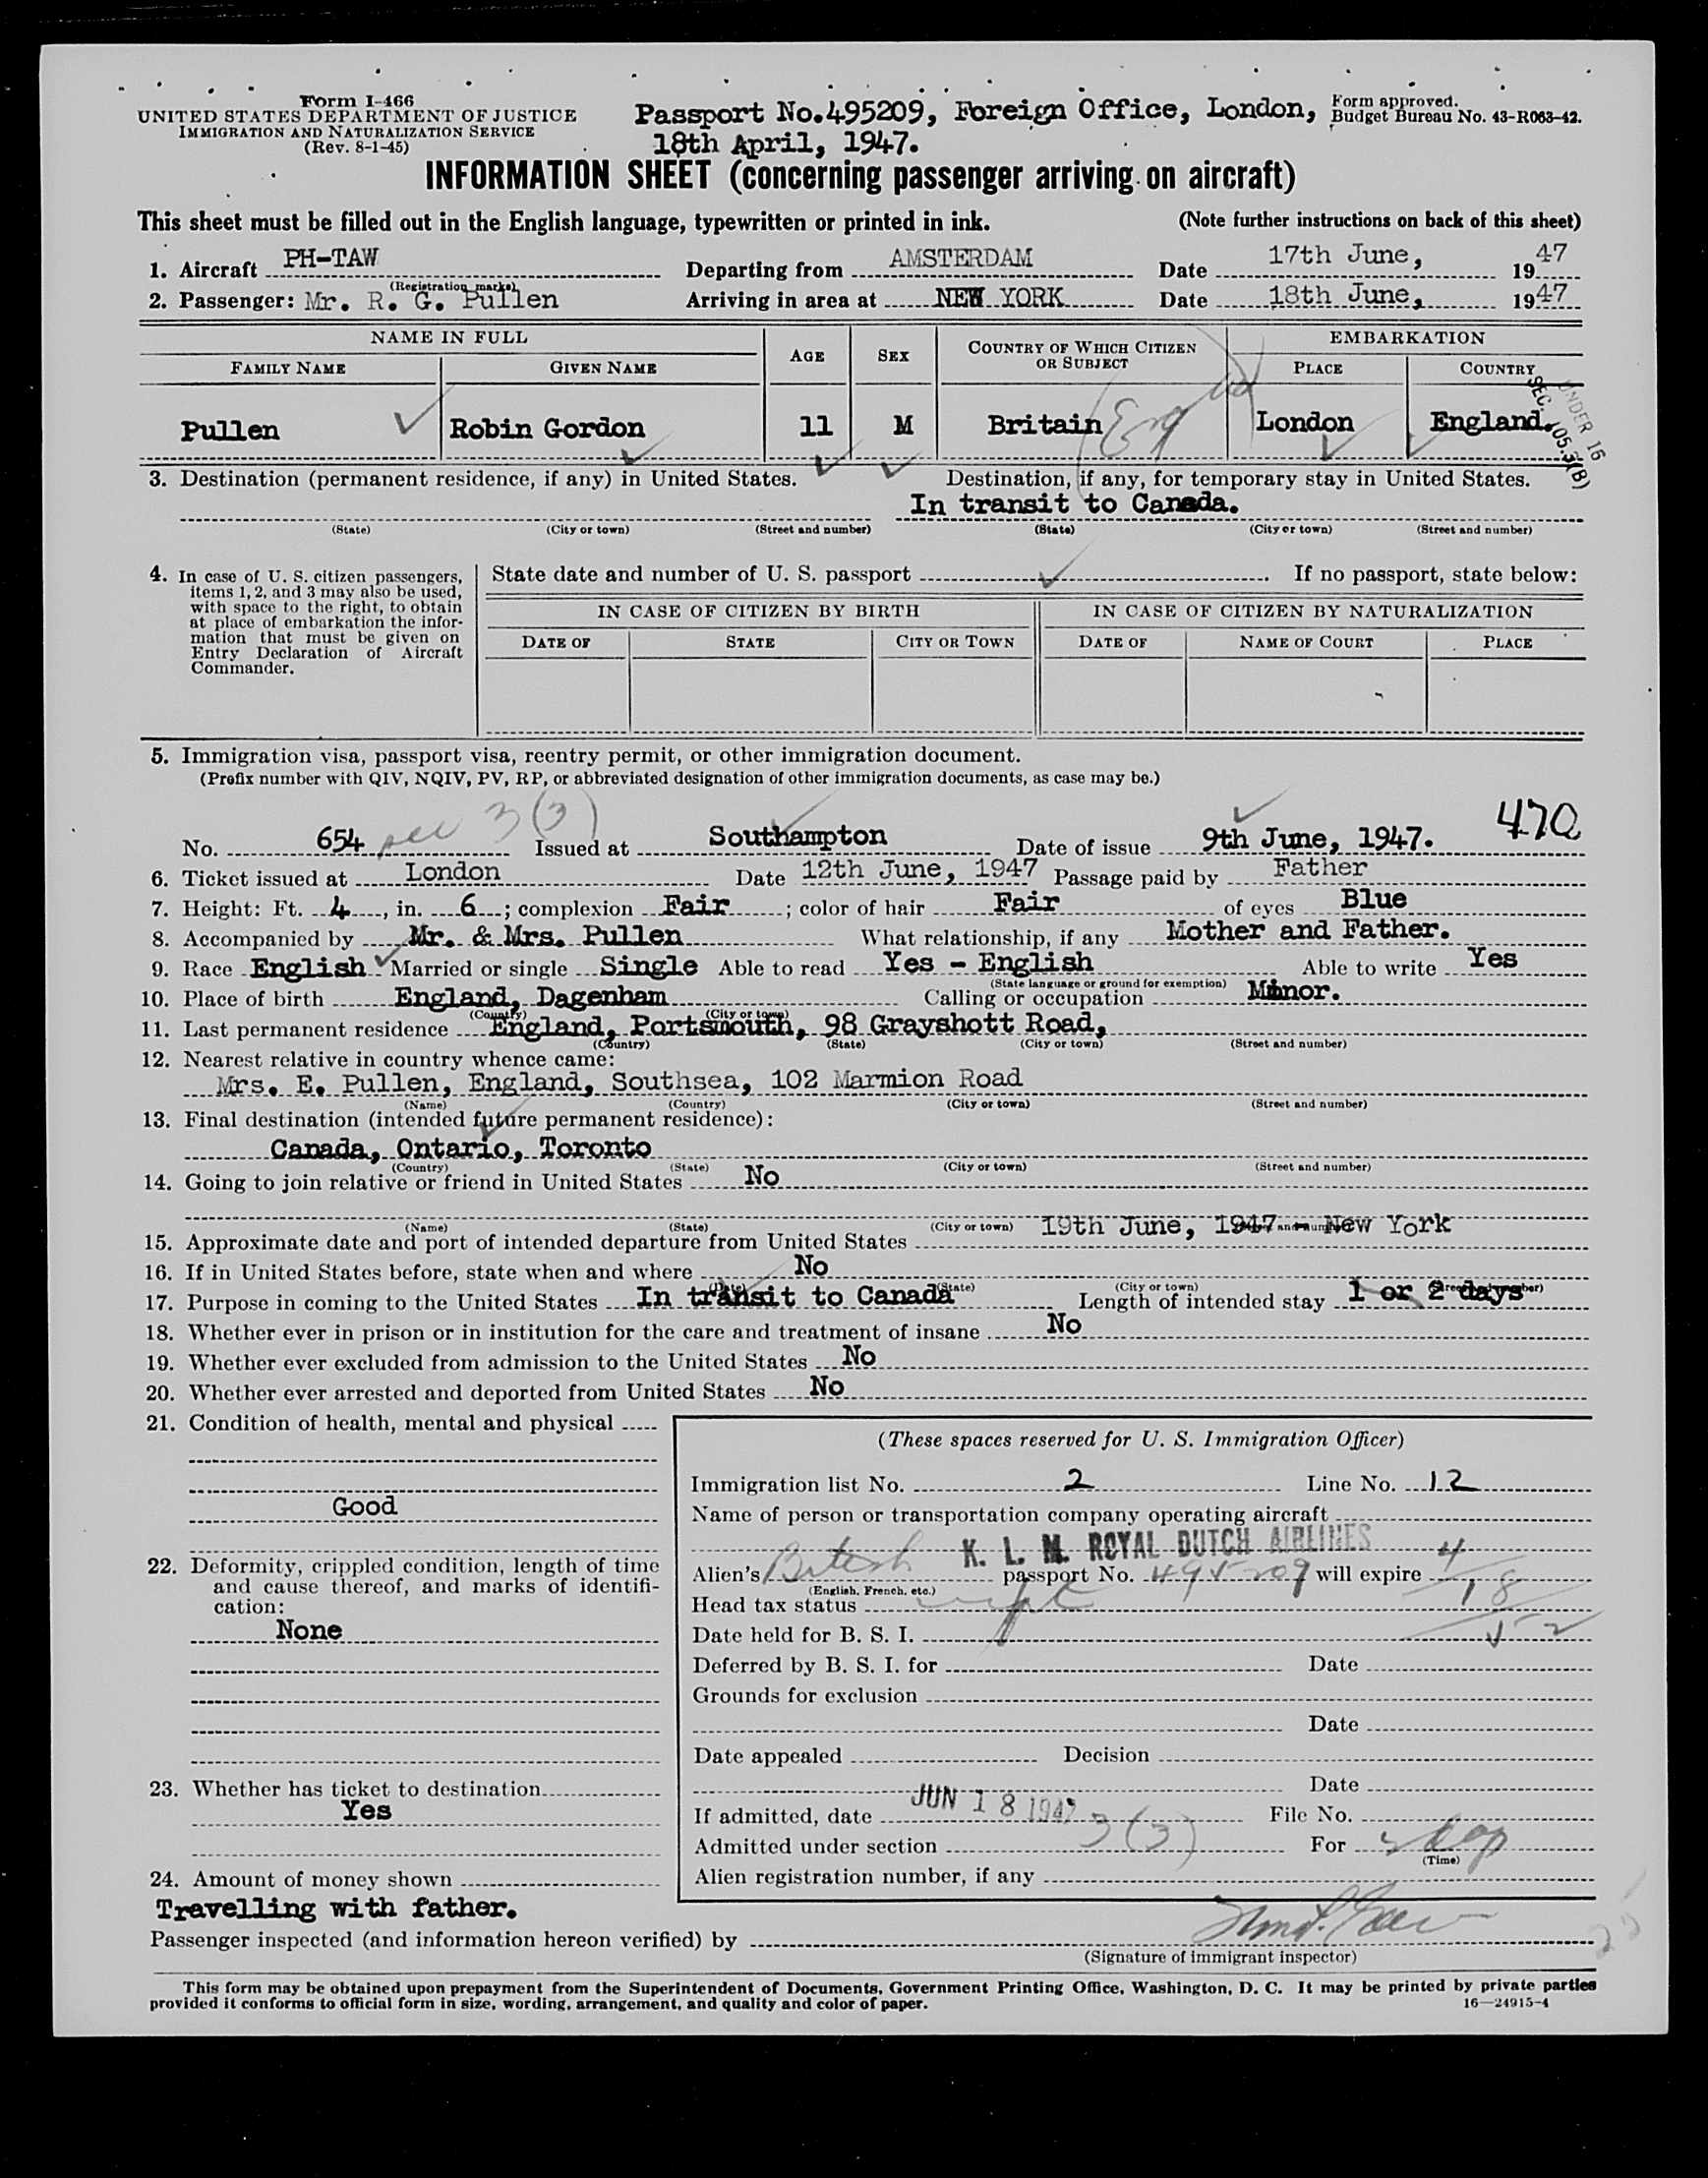 Form I-466
UNITED STATES DEPARTMENT OF JUSTICE
IMMIGRATION AND NATURALIZATION SERVICE
(Rev. 8-1-45)
Passport No.495209, Foreign Office, London,
18th April, 1947.
Form approved.
Budget Bureau No. 43-R063-42.
INFORMATION SHEET (concerning passenger arriving on aircraft)
This sheet must be filled out in the English language, typewritten or printed in ink. (Note further instructions on back of this sheet)
1. Aircraft PH-TAW Departing from AMSTERDAM Date 17th June, 1947
(Registration marks)
2. Passenger: Mr. R. G. Pullen Arriving in area at NEW YORK Date 18th June, 1947
NAME IN FULL AGE SEX COUNTRY OF WHICH CITIZEN OR SUBJECT EMBARKATION
FAMILY NAME GIVEN NAME PLACE COUNTRY
Pullen Robin Gordon 11 M Britain Eng London England.
UNDER 16
SEC. 105.3(B)
3. Destination (permanent residence, if any) in United States. Destination, if any, for temporary stay in United States.
In transit to Canada.
(State) (City or town) (Street and number) (State) (City or town) (Street and number)
4. In case of U. S. citizen passengers,
items 1, 2, and 3 may also be used,
with space to the right, to obtain
at place of embarkation the infor-
mation that must be given on
Entry Declaration of Aircraft
Commander.
State date and number of U. S. passport . If no passport, state below:
IN CASE OF CITIZEN BY BIRTH IN CASE OF CITIZEN BY NATURALIZATION
DATE OF STATE CITY OR TOWN DATE OF NAME OF COURT PLACE
5. Immigration visa, passport visa, reentry permit, or other immigration document.
(Prefix number with QIV, NQIV, PV, RP, or abbreviated designation of other immigration documents, as case may be.)
470
No. 654 sec 3(3) Issued at Southampton Date of issue 9th June, 1947.
6. Ticket issued at London Date 12th June, 1947 Passage paid by Father
7. Height: Ft. 4, in. 6; complexion Fair; color of hair Fair of eyes Blue
8. Accompanied by Mr. & Mrs. Pullen What relationship, if any Mother and Father.
9. Race English Married or single Single Able to read Yes - English Able to write Yes
(State language or ground for exemption)
10. Place of birth England, Dagenham Calling or occupation Minor.
(Country) (City or town)
11. Last permanent residence England, Portsmouth, 98 Grayshott Road,
(Country) (State) (City or town) (Street and number)
12. Nearest relative in country whence came:
Mrs. E. Pullen, England, Southsea, 102 Marmion Road
(Name) (Country) (City or town) (Street and number)
13. Final destination (intended future permanent residence):
Canada, Ontario, Toronto
(Country) (State) (City or town) (Street and number)
14. Going to join relative or friend in United States No
(Name) (State) (City or town) (Street and number)
15. Approximate date and port of intended departure from United States 19th June, 1947 - New York
16. If in United States before, state when and where No
(Date) (State) (City or town) (Street and number)
17. Purpose in coming to the United States In transit to Canada Length of intended stay 1 or 2 days
18. Whether ever in prison or in institution for the care and treatment of insane No
19. Whether ever excluded from admission to the United States No
20. Whether ever arrested and deported from United States No
21. Condition of health, mental and physical
Good
22. Deformity, crippled condition, length of time
and cause thereof, and marks of identifi-
cation:
None
23. Whether has ticket to destination
Yes
24. Amount of money shown
Travelling with father.
(These spaces reserved for U. S. Immigration Officer)
Immigration list No. 2 Line No. 12
Name of person or transportation company operating aircraft
K. L. M. ROYAL DUTCH AIRLINES
Alien's British passport No. 495209 will expire 4/18/52
(English, French, etc.)
Head tax status
Date held for B. S. I.
Deferred by B. S. I. for Date
Grounds for exclusion
Date
Date appealed Decision
Date
If admitted, date JUN 18 1947 File No.
Admitted under section 3(3) For 2 days
(Time)
Alien registration number, if any
Passenger inspected (and information hereon verified) by
(Signature of immigrant inspector)
This form may be obtained upon prepayment from the Superintendent of Documents, Government Printing Office, Washington, D. C. It may be printed by private parties
provided it conforms to official form in size, wording, arrangement, and quality and color of paper.
16—24915-4